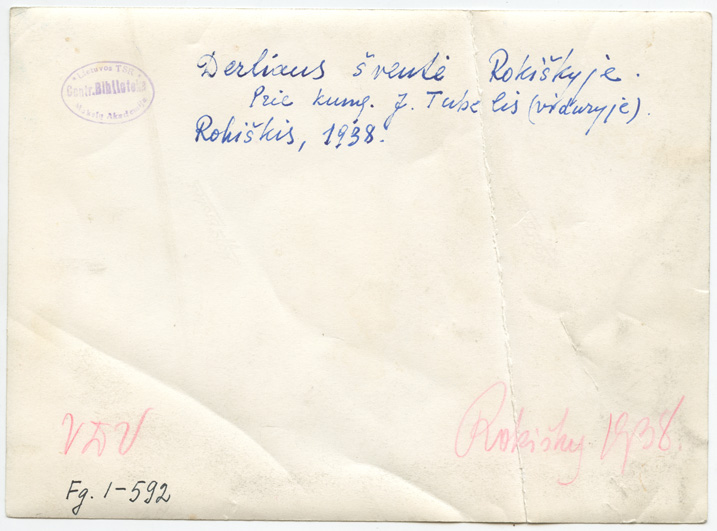 Lietuvos TSR
Centr. Biblioteka
Mokslų Akademija
Derliaus šventė Rokiškyje.
Prie kunig. J. Tubelis (viduryje).
Rokiškis, 1938.
VDV
Rokišky 1938
Fg. 1-592